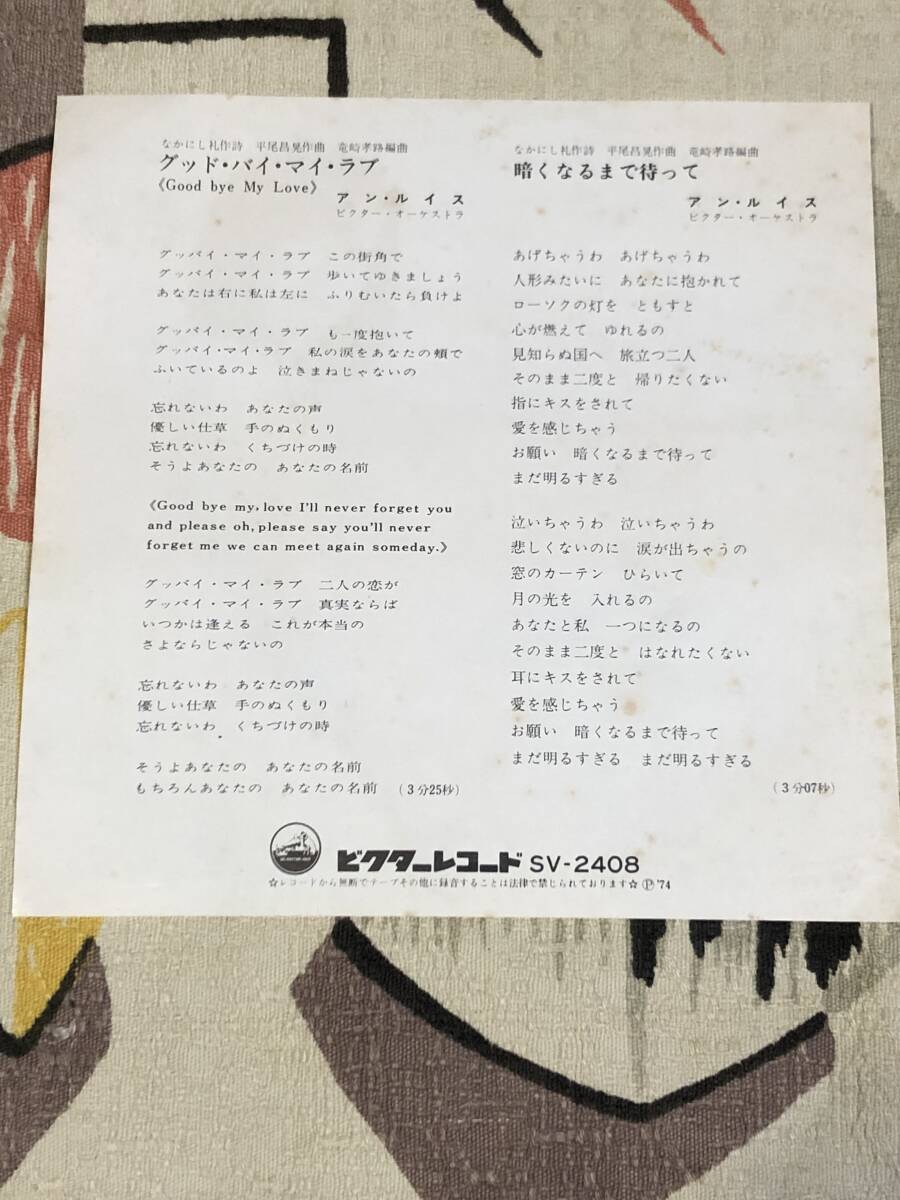 なかにし礼作詩　平尾昌晃作曲　竜崎孝路編曲
グッド・バイ・マイ・ラブ
《Good bye My Love》
アン・ルイス
ビクター・オーケストラ
グッバイ・マイ・ラブ　この街角で
グッバイ・マイ・ラブ　歩いてゆきましょう
あなたは右に私は左に　ふりむいたら負けよ
グッバイ・マイ・ラブ　も一度抱いて
グッバイ・マイ・ラブ　私の涙をあなたの頬で
ふいているのよ　泣きまねじゃないの
忘れないわ　あなたの声
優しい仕草　手のぬくもり
忘れないわ　くちづけの時
そうよあなたの　あなたの名前
《Good bye my, love I'll never forget you
and please oh, please say you'll never
forget me we can meet again someday.》
グッバイ・マイ・ラブ　二人の恋が
グッバイ・マイ・ラブ　真実ならば
いつかは逢える　これが本当の
さよならじゃないの
忘れないわ　あなたの声
優しい仕草　手のぬくもり
忘れないわ　くちづけの時
そうよあなたの　あなたの名前
もちろんあなたの　あなたの名前　(3分25秒)
なかにし礼作詩　平尾昌晃作曲　竜崎孝路編曲
暗くなるまで待って
アン・ルイス
ビクター・オーケストラ
あげちゃうわ　あげちゃうわ
人形みたいに　あなたに抱かれて
ローソクの灯を　ともすと
心が燃えて　ゆれるの
見知らぬ国へ　旅立つ二人
そのまま二度と　帰りたくない
指にキスをされて
愛を感じちゃう
お願い　暗くなるまで待って
まだ明るすぎる
泣いちゃうわ　泣いちゃうわ
悲しくないのに　涙が出ちゃうの
窓のカーテン　ひらいて
月の光を　入れるの
あなたと私　一つになるの
そのまま二度と　はなれたくない
耳にキスをされて
愛を感じちゃう
お願い　暗くなるまで待って
まだ明るすぎる　まだ明るすぎる
(3分07秒)
ビクターレコード SV-2408
☆レコードから無断でテープその他に録音することは法律で禁じられております☆ Ⓟ'74